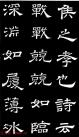 侯之孝也詩云
戰戰兢兢如臨
深淵如履薄冰